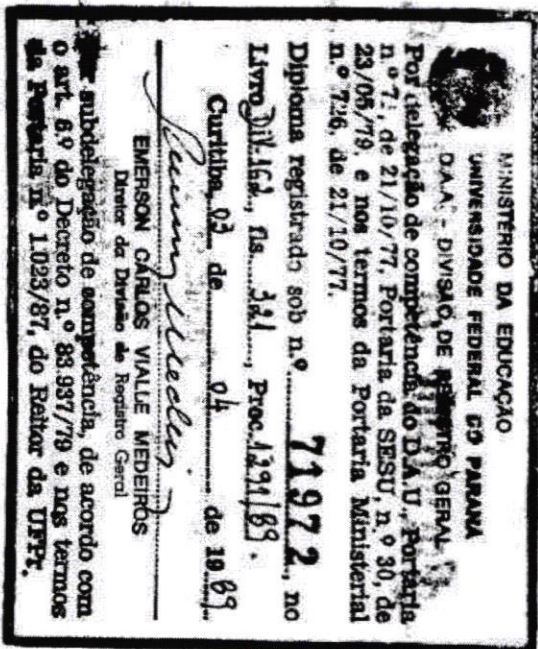 MINISTÉRIO DA EDUCAÇÃO
UNIVERSIDADE FEDERAL DO PARANÁ
D.A.A. - DIVISÃO DE REGISTRO GERAL
Por delegação de competência do D.A.U., Portaria
n.º 71, de 21/10/77, Portaria da SESU, n.º 30, de
23/05/79, e nos termos da Portaria Ministerial
n.º 726, de 21/10/77.
Diploma registrado sob n.º 71972, no
Livro Div.162, fls. 321, Proc. 1291/89.
Curitiba, 03 de 04 de 1989
EMERSON CARLOS VIALLE MEDEIROS
Diretor da Divisão de Registro Geral
subdelegação de competência, de acordo com
o art. 6.º do Decreto n.º 83.937/79 e nos termos
da Portaria n.º 1.023/87, do Reitor da UFPr.